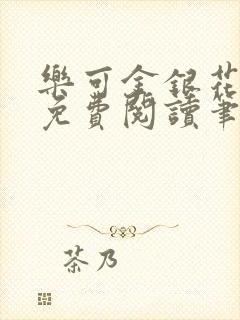 樂可金銀花
免費閱讀筆
茶乃